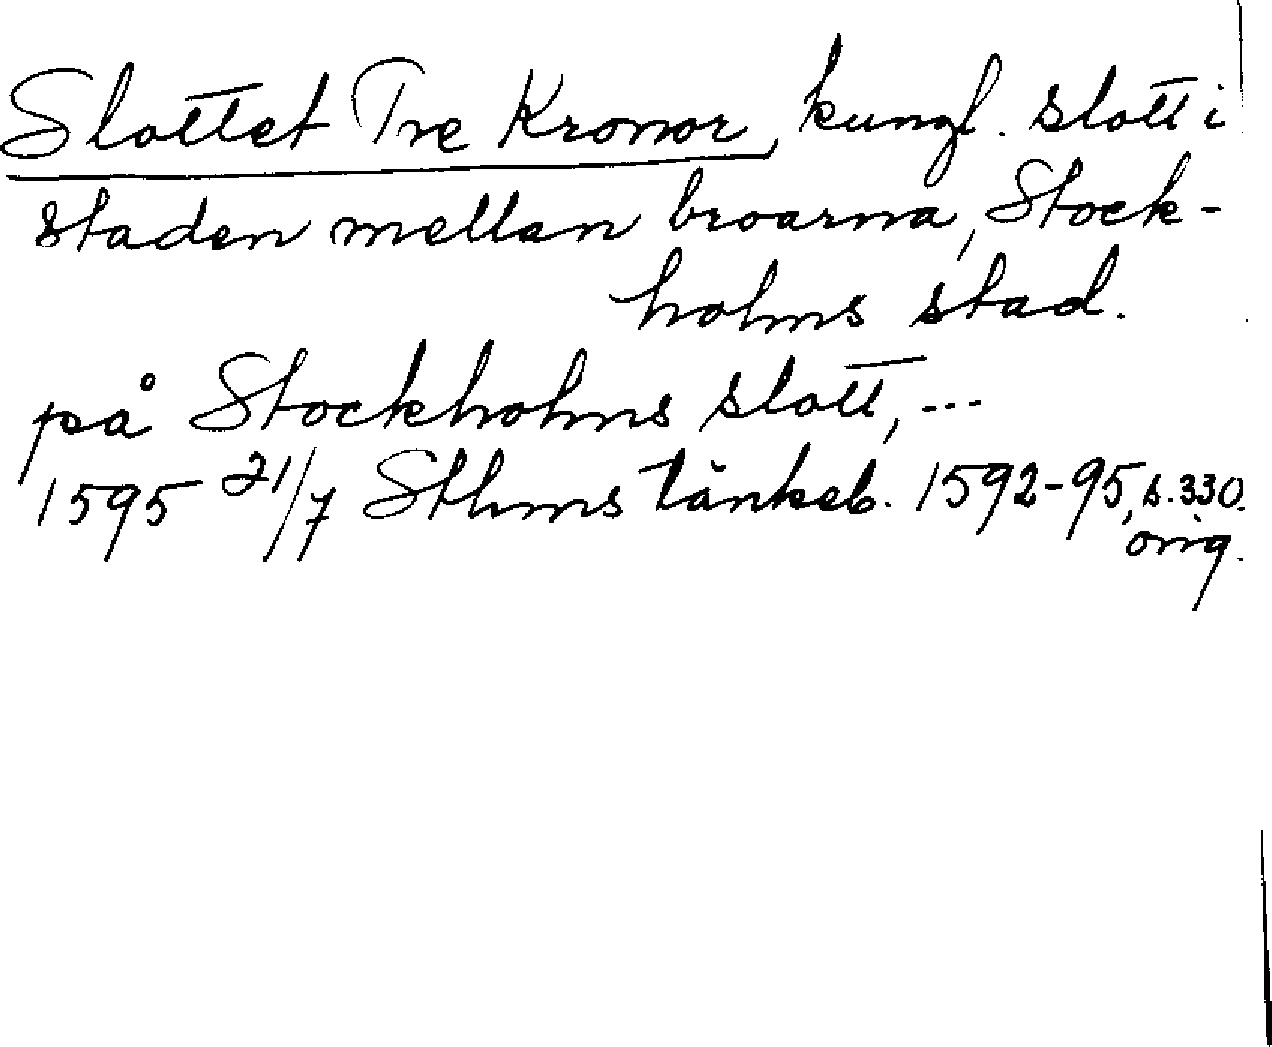 Slottet Tre Kronor, kungl. slott i
staden mellan broarna, Stock-
holms stad.
på Stockholms slott, ...
1595 21/7 Sthms tänkeb. 1592-95, s. 330.
orig.